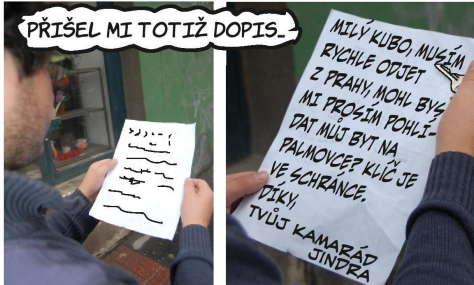 PŘIŠEL MI TOTIŽ DOPIS...
MILÝ KUBO, MUSÍM
RYCHLE ODJET
Z PRAHY, MOHL BYS
MI PROSÍM POHLÍ-
DAT MŮJ BYT NA
PALMOVCE? KLÍČ JE
VE SCHRÁNCE.
DÍKY,
TVŮJ KAMARÁD
JINDRA